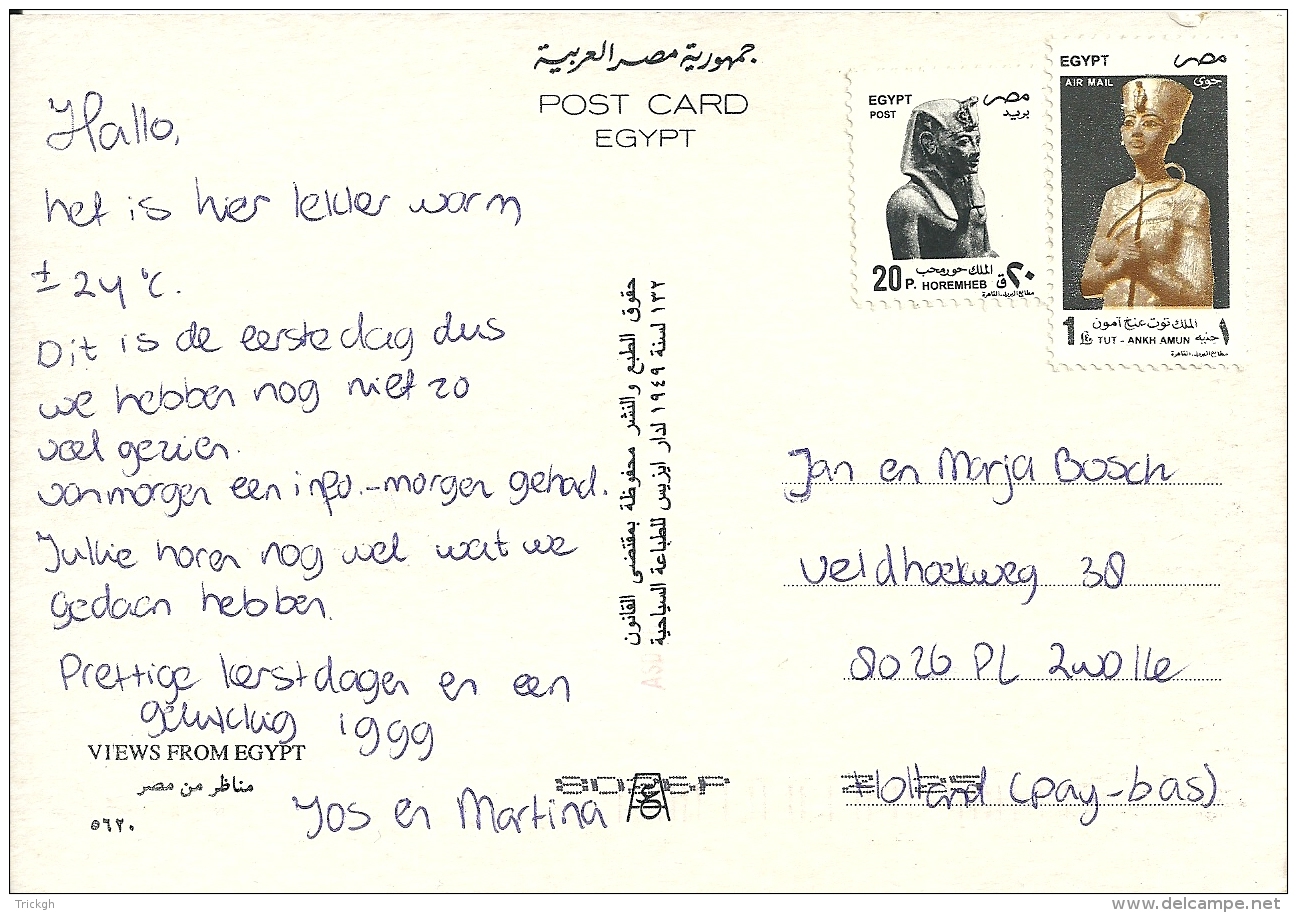 جمهورية مصر العربية
POST CARD
EGYPT
EGYPT مصر
POST بريد
الملك حور محب
20 P. HOREMHEB ٢٠ ق
مطابع البريد.القاهرة
EGYPT مصر
AIR MAIL جوى
الملك توت عنخ آمون
1 TUT - ANKH AMUN جنيه ١
مطابع البريد.القاهرة
Hallo,
het is hier lekker warm
± 24 °C.
Dit is de eerste dag dus
we hebben nog niet zo
veel gezien.
vanmorgen een info.-morgen gehad.
Jullie horen nog wel wat we
gedaan hebben.
Prettige kerstdagen en een
gelukkig 1999
Jos en Martina
VIEWS FROM EGYPT
مناظر من مصر
٥٦٢٠
حقوق الطبع والنشر محفوظة بمقتضى القانون
١٣٢ لسنة ١٩٤٩ لدار ايزيس للطباعة السياحية
Jan en Marja Bosch
Veldhoekweg 38
8026 PL Zwolle
Holland (pay-bas)
8026P
Trickgh
delcampe.net